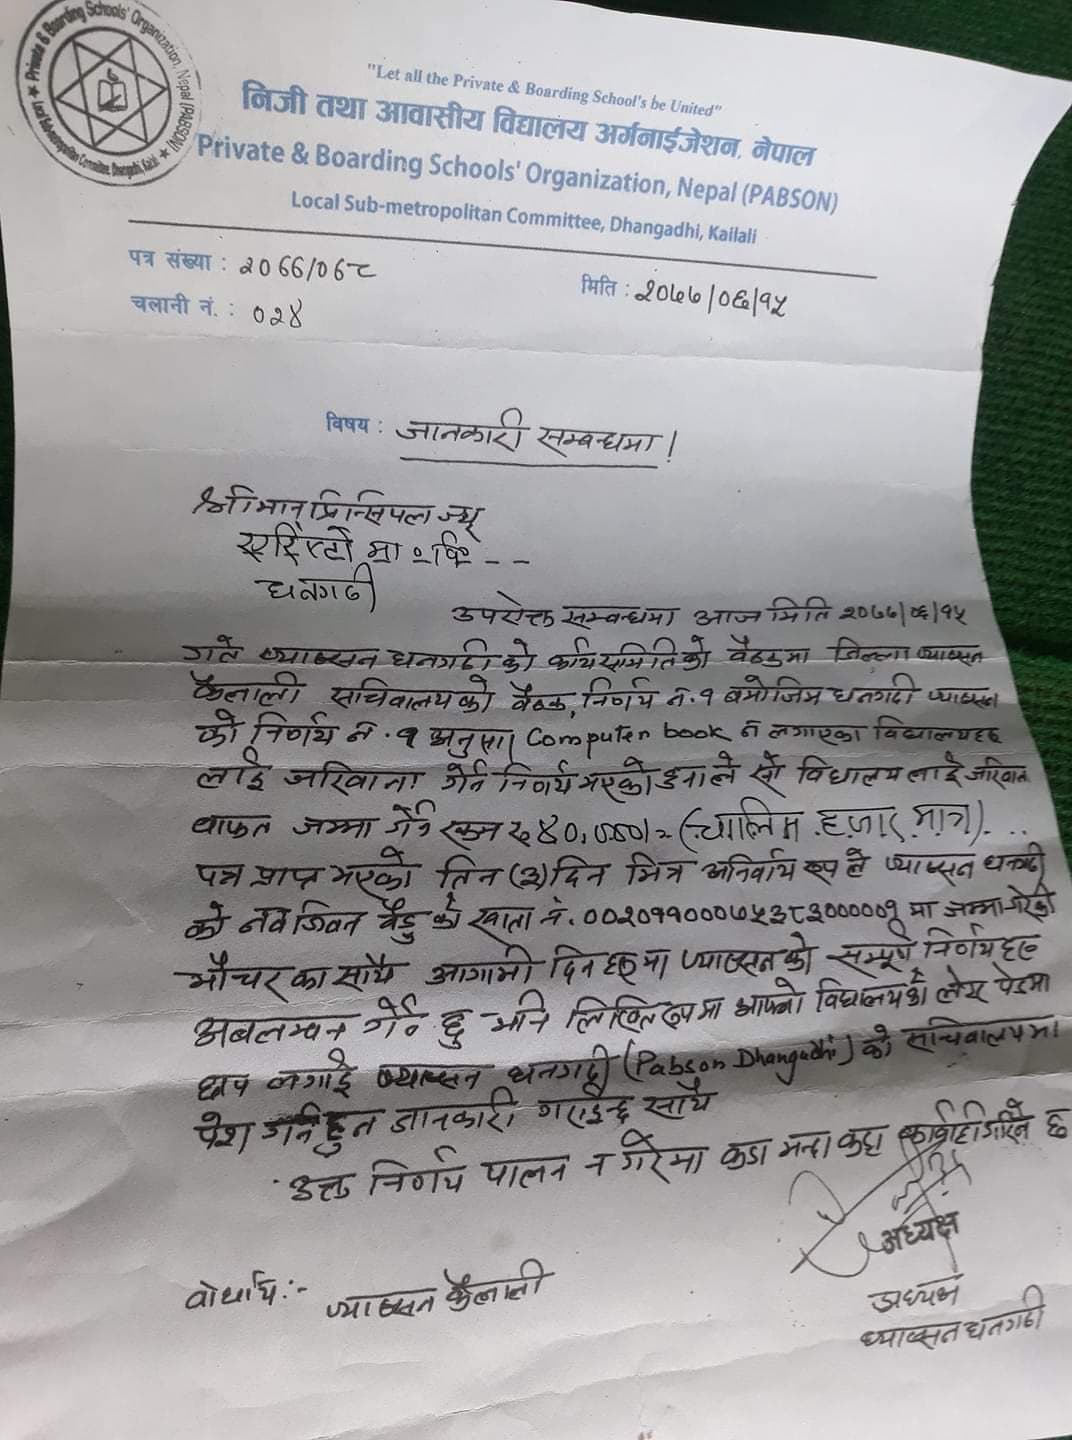 Private & Boarding Schools' Organization, Nepal (PABSON)
Local Sub-metropolitan Committee, Dhangadhi, Kailali
"Let all the Private & Boarding School's be United"
निजी तथा आवासीय विद्यालय अर्गनाईजेशन, नेपाल
Private & Boarding Schools' Organization, Nepal (PABSON)
Local Sub-metropolitan Committee, Dhangadhi, Kailali
पत्र संख्या : २०७७/०७८
मिति : २०७७/०६/१५
चलानी नं. : ०२४
विषय : जानकारी सम्बन्धमा !
श्रीमान् प्रिन्सिपल ज्यू
एरिस्टो मा०वि० - -
धनगढी
उपरोक्त सम्बन्धमा आज मिति २०७७/०६/१५
गते प्याब्सन धनगढी को कार्यसमितिको बैठकमा जिल्ला प्याब्सन
कैलाली सचिवालयको बैठक, निर्णय नं. १ बमोजिम धनगढी प्याब्सन
को निर्णय नं. १ अनुसार Computer book न लगाएका विद्यालयहरु
लाई जरिवाना गर्ने निर्णय भएको हुनाले सो विद्यालय लाई जरिवाना
वाफत जम्मा गर्ने रकम रु ४०,०००।= (चालिस हजार मात्र) . . .
पत्र प्राप्त भएको तिन (३) दिन भित्र अनिवार्य रूप ले प्याब्सन धनगढी
को नव जिवन बैङ्क को खाता नं. ००२०११०००७५३८३००००१ मा जम्मा गरेको
भौचर का साथै आगामी दिन हरुमा प्याब्सन को सम्पूर्ण निर्णय हरु
अबलम्वन गर्ने छु भनि लिखित रूपमा आफ्नो विद्यालयको लेटर पेडमा
छाप लगाई प्याब्सन धनगढी (Pabson Dhangadhi) को सचिवालयमा
पेश गर्नुहुन जानकारी गराईन्छ साथै
उक्त निर्णय पालन न गरेमा कडा भन्दा कडा कार्वाही गरिने छ
अध्यक्ष
वोधार्थ :- प्याब्सन कैलाली
अध्यक्ष
प्याब्सन धनगढी